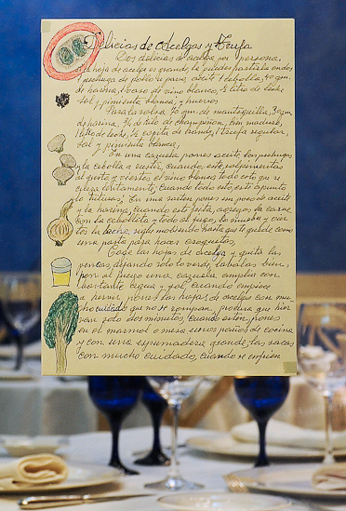 Delicias de Acelgas y Trufa
Dos delicias de acelga por persona,
si la hoja de acelga es grande, la puedes partir en dos
1 pechuga de pollo o pavo, aceite 1 cebolla, 40 gm.
de harina, 1 vaso de vino blanco, ½ litro de leche
sal y pimienta blanca, y huevos
Para la salsa 40 gm. de mantequilla, 30 gm.
de harina, ¼ de kilo de champiñon,
de leche, ½ copita de brandy, 1 trufa regular,
sal y pimienta blanca,
En una cazuela pones aceite, las pechugas
y la cebolla a rustir, cuando este, salpimentas
al gusto y viertes el vino blanco, todo esto que se
cueza lentamente, cuando todo esto este a punto
lo trituras, En una sarten pones un poco de aceite
y la harina, cuando este frita, agregas la carne
con la cebollita y todo el jugo, lo rehogas y vier-
tes la leche, sigues moviendo hasta que te quede como
una pasta para hacer croquetas,
Coge las hojas de acelga y quita las
pencas, dejando solo lo verde, lavalas bien,
pon al fuego una cazuela amplia con
bastante agua y sal, cuando empiece
a hervir, pones las hojas de acelga con mu-
cho cuidado que no se rompan, procura que hier-
van solo dos minutos, cuando esten, pones
en el marmol o mesa unos paños de cocina
y con una espumadera grande, las sacas
con mucho cuidado, cuando se enfrien